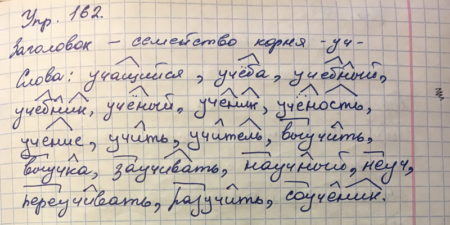 Упр. 162.
Заголовок – семейство корня -уч-
Слова: учащийся, учёба, учебный,
учебник, учёный, ученик, учёность,
учение, учить, учитель, выучить,
выучка, заучивать, научный, неуч,
переучивать, разучить, соученик.